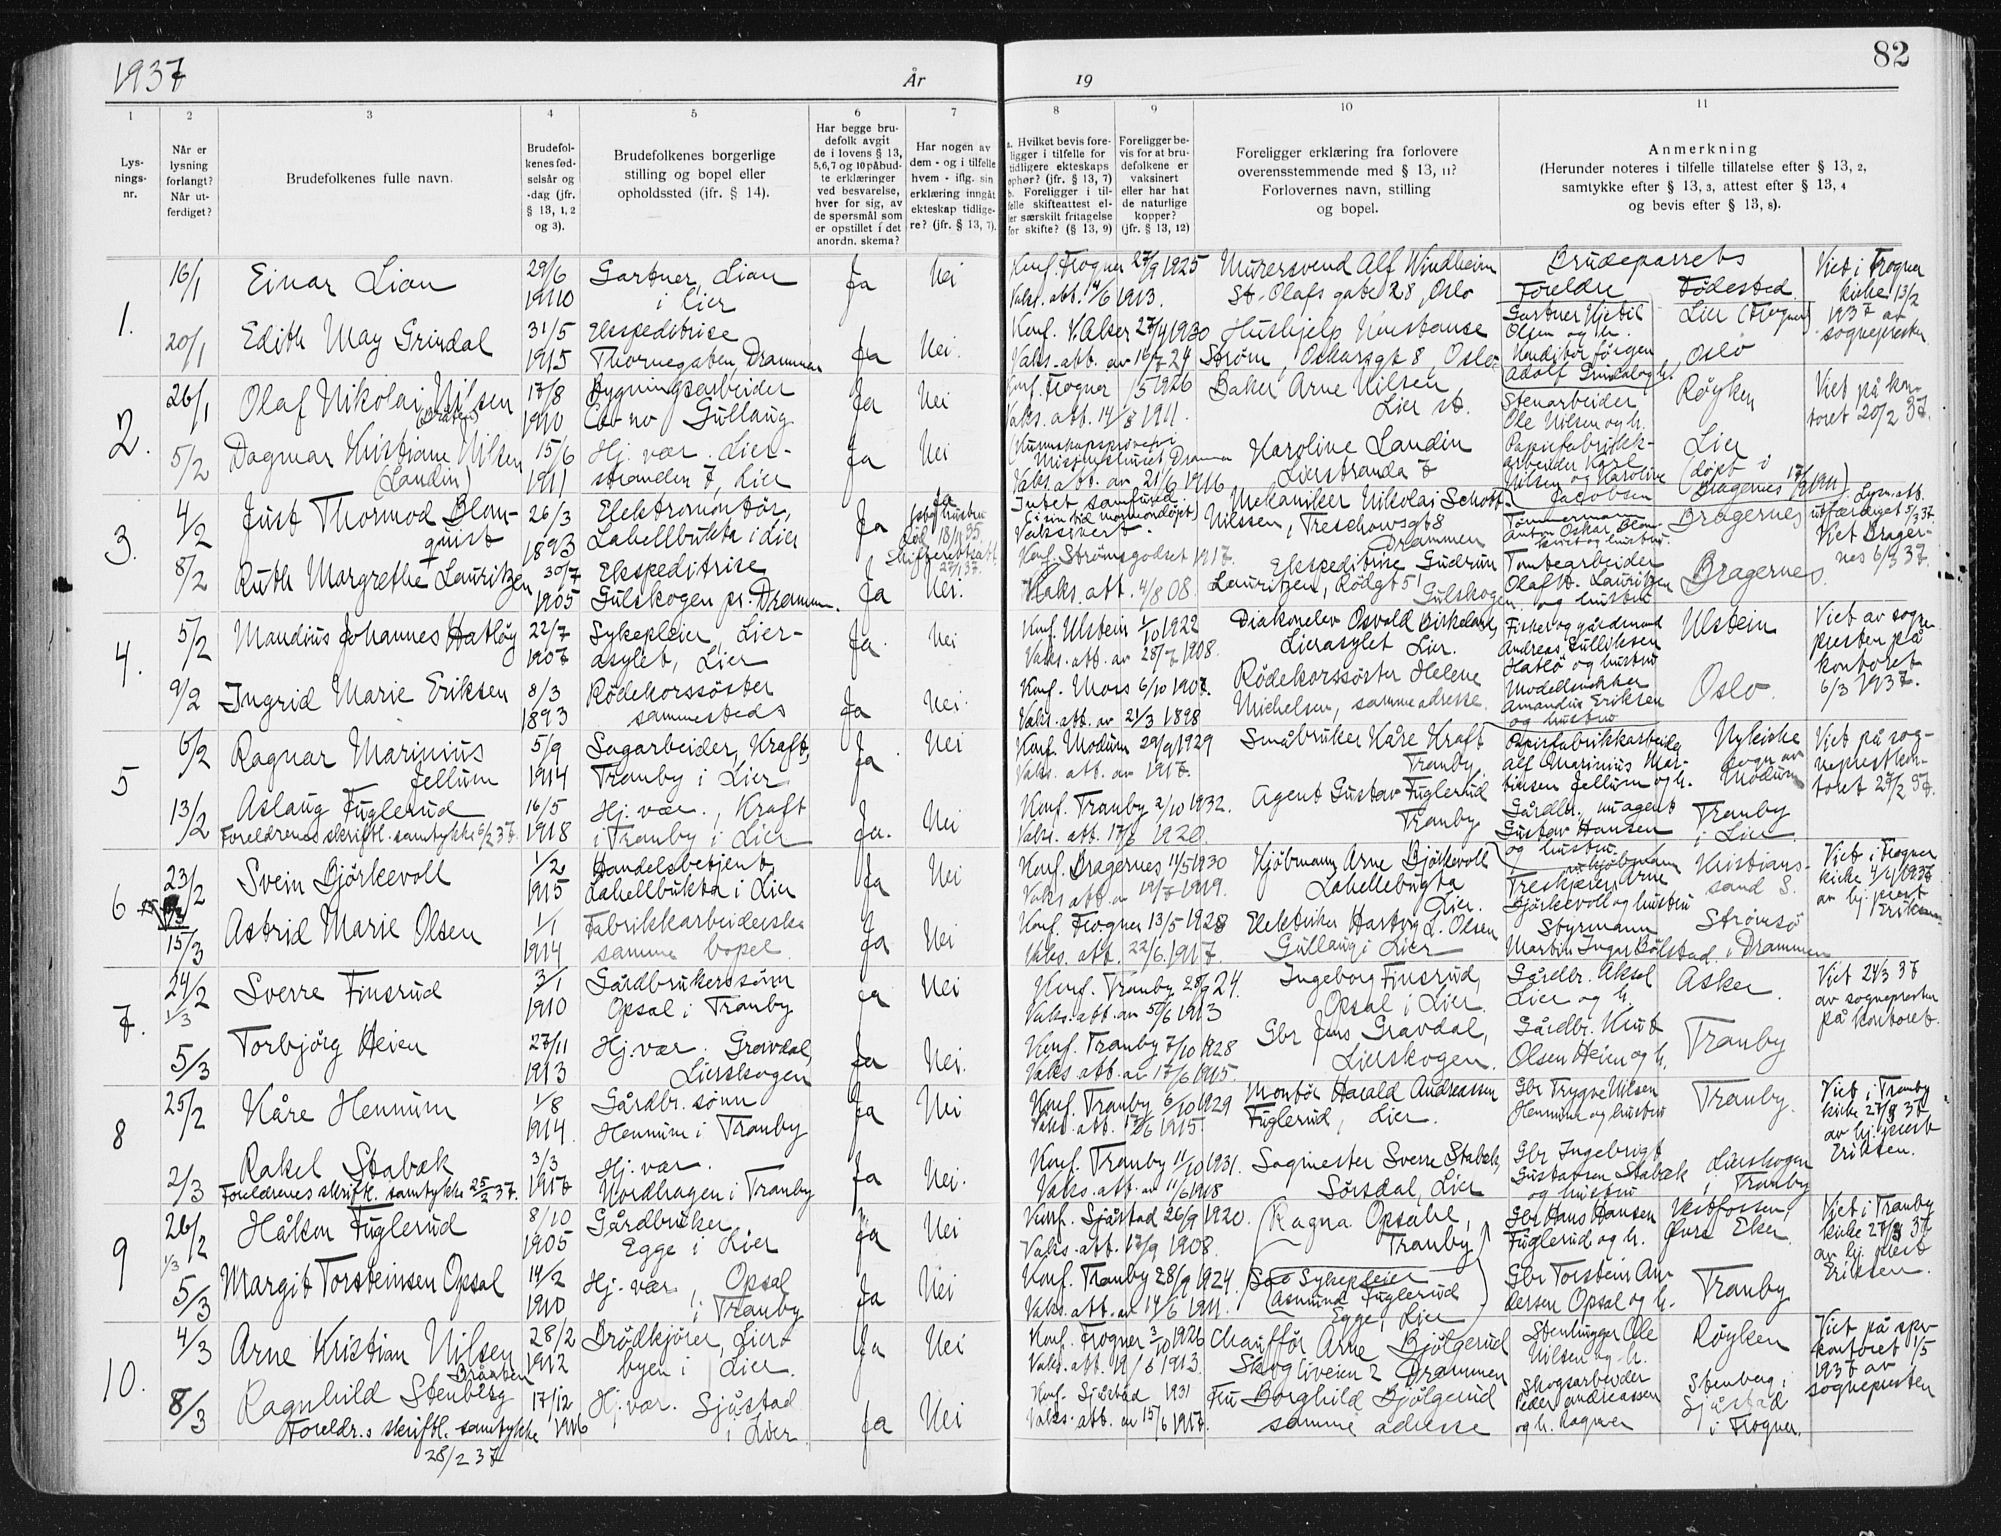 1937
År
19
82
1
2
3
4
5
6
7
8
9
10
11
Lysnings-nr.
Når er lysning forlangt? Når utferdiget?
Brudefolkenes fulle navn.
Brudefolkenes fødselsår og -dag (jfr. § 13, 1, 2 og 3).
Brudefolkenes borgerlige stilling og bopel eller opholdssted (ifr. § 14).
Har begge brudefolk avgit de i lovens § 13, 5,6,7 og 10 påbudte erklæringer ved besvarelse, hver for sig, av de spørsmål som er opstillet i det anordn. skema?
Har nogen av dem - og i tilfelle hvem - iflg. sin erklæring inngått ekteskap tidligere? (jfr. § 13, 7).
a. Hvilket bevis foreligger i tilfelle for tidligere ekteskaps ophør? (jfr. § 13, 7) b. Foreligger i tilfelle skifteattest eller særskilt fritagelse for skifte? (§ 13, 9)
Foreligger bevis for at brudefolkene er vaksinert eller har hat de naturlige kopper? (jfr. § 13, 12)
Foreligger erklæring fra forlovere overensstemmende med § 13, 11? Forlovernes navn, stilling og bopel.
Anmerkning
(Herunder noteres i tilfelle tillatelse efter § 13, 2, samtykke efter § 13, 3, attest efter § 13, 4 og bevis efter § 13, 8).
Brudeparrets
Foreldre
Fødested
1.
16/1
Einar Lian
29/6 1910
Gartner, Lian i Lier
Ja
Nei
Konf. Frogner 27/9 1925
Vaks. att. 14/6 1913.
Murersvend Alf Windheim
St. Olafs gate 28, Oslo
Gartner Kjetil Olsen og h.
Lier (Frogner)
Viet i Frogner kirke 13/2 1937 av sognepresten
20/1
Edith May Grindal
31/5 1915
Ekspeditrise
Thornegaten, Drammen
Ja
Nei.
Konf. V. Aker 27/4 1930
Vaks. att. av 16/7 24
Hushjelp Konstanse
Strøm, Oskarsgt 8, Oslo.
Adolf Grindal og h.
Oslo
2.
26/1
Olaf Nikolai Nilsen
(Bråten)
17/8 1910
Bygningsarbeider
Gullaug
Ja
Nei
Konf. Frogner 1926
Vaks. att. 14/8 1911.
Baker Arne Nilsen,
Lier st.
Stenarbeider
Ole Nilsen og h.
Røyken
Viet på kontoret 20/2 37.
5/2
Dagmar Kristiane Nilsen
(Landin)
15/6 1911
Hj. vær. Lierstranden 7, Lier
Ja
Nei
Vaks. att. av 21/6 1916
Karoline Landin
Lierstranda 7
Papirfabrikkarbeider Karl
Nilsen og Karoline
Jacobsen
Lier
(døpt i
Bragernes 17/9 1911)
3.
4/2
Just Thormod Blomquist
26/3 1893
Elektromontør,
Lahellbukta i Lier
Ja
Ja
hustru død 18/11 35.
Skifteattest 27/1 37.
Intet samfund
Vaksinert
Mekaniker Nikolai Schøtt-
Nilssen, Treschowsgt 8
Drammen
Tømmermann
Anton Oskar Blomkvist og hustru
Bragernes
Lysn. att. utfærdiget 5/3 37.
Viet Bragernes 6/3 37.
8/2
Ruth Margrethe Lauritzen
30/7 1905
Ekspeditrise
Gulskogen pr. Drammen.
Ja
Nei.
Konf. Strømsgodset 1917.
Vaks. att. 4/8 08.
Ekspeditrise Gudrun
Lauritzen, Rødgt 51
Gulskogen
Tomtearbeider
Olaf H. Lauritzen
og hustru
Bragernes.
4.
5/2
Mandius Johannes Hatløy
22/7 1907
Sykepleier, Lierasylet, Lier
Ja.
Nei
Konf. Ulstein 1/10 1922
Vaks. att. av 25/7 1908.
Diakonelev Osvald Birkeland,
Lierasylet Lier.
Fisker og gårdmand
Andreas Gulliksen
Hatlø og hustru
Ulstein
Viet av sognepresten på kontoret 6/3 1937.
9/2
Ingrid Marie Eriksen
8/3 1893
Rødekorssøster
sammesteds
Ja
Nei.
Konf. Moss 6/10 1907.
Vaks. att. av 21/3 1898
Rødekorssøster Helene
Michelsen, samme adresse.
Modellsnekker
Amandus Eriksen
og hustru
Oslo.
5
6/2
Ragnar Marinius Jellum
5/9 1914
Sagarbeider, Kraft,
Tranby i Lier
Ja.
Nei
Konf. Modum 29/9 1929
Vaks. att. av 1917.
Småbruker Kåre Kraft
Tranby.
Papirfabrikkarbeider
Alf Marinius Martinsen Jellum og h.
Nykirke sogn av Modum
Viet på sogneprestkontoret 27/2 37.
13/2
Aslaug Fuglerud
Foreldrenes skriftl. samtykke 6/2 37.
16/5 1918
Hj. vær., Kraft
i Tranby i Lier
Ja.
Nei
Konf. Tranby 2/10 1932.
Vaks. att. 17/6 1920.
Agent Gustav Fuglerud
Tranby
Gårdbr. nu agent
Gustav Hansen
og hustru
Tranby
i Lier
6
23/2
Svein Bjørkevoll
1/2 1915
Handelsbetjent
Lahellbukta i Lier
Ja
Nei
Konf. Bragernes 11/5 1930
Vaks att av 19/7 1919.
Kjøbmann Arne Bjørkevoll
Lahellebugta
Lier.
nu kjøbmann
Treskjærer Arne
Bjørkevoll og hustru
Kristianssand S.
Viet i Frogner kirke 4/4 1937 av hj. prest Eriksen
15/3
Astrid Marie Olsen
1/1 1914
Fabrikkarbeiderske
samme bopel.
Ja
Nei
Konf. Frogner 13/5 1928
Vaks. att. 22/6. 1917.
Elektriker Hartvig L. Olsen
Gullaug i Lier
Styrmann
Martin Ingar Bølstad
Strømsø
i Drammen
7.
24/2
1/3
Sverre Finsrud
3/1 1910
Gårdbrukersønn
Opsal i Tranby
Ja
Nei
Konf. Tranby 28/9 24.
Vaks. att. av 5/6 1913
Ingeborg Finsrud,
Opsal i Lier
Gårdbr. Aksel
Lier og h.
Asker.
Viet 24/3 37 av sognepresten på kontoret.
5/3
Torbjørg Heien
27/11 1913
Hj. vær. Gravdal,
Lierskogen
Ja
Nei.
Konf. Tranby 7/10 1928
Vaks att. av 17/6 1915.
Gbr Jens Gravdal,
Lierskogen.
Gårdbr. Knut
Olsen Heien og h.
Tranby
8
25/2
Kåre Hennum
1/8 1914.
Gårdbr. sønn
Hennum i Tranby
Ja
Nei
Konf. Tranby 6/10 1929
Vaks. att. 1915
Montør Harald Andreassen
Fuglerud, Lier.
Gbr Trygve Nilsen
Hennum og hustru
Tranby.
Viet i Tranby kirke 27/3 37 av hj. prest Eriksen.
2/3
Rakel Stabæk
Foreldrenes skriftl. samtykke 25/2 37.
3/3 1917
Hj. vær.
Nordhagen i Tranby
Ja
Nei.
Konf. Tranby 11/10 1931.
Vaks. att. av 11/6 1918
Sagmester Sverre Stabæk,
Sørsdal, Lier
Gbr Ingebrigt
Gustavsen Stabæk
og hustru
Lierskogen
i Tranby
9
26/2
1/3
Håkon Fuglerud
8/10 1905
Gårdbruker
Egge i Lier
Ja
Nei
Konf. Sjåstad 26/9 1920.
Vaks. att. 17/9 1908.
Ragna Opsahl,
Tranby
Gbr Hans Hansen
Fuglerud og h.
Vestfossen,
Øvre Eker
Viet i Tranby kirke 27/3 37 av hj. prest Eriksen.
5/3
Margit Torsteinsen Opsal
14/2 1910
Hj. vær, Opsal
i Tranby
Ja
Nei
Konf. Tranby 28/9 1924.
Vaks. att. av 14/6 1911.
Sykepleier
Asmund Fuglerud
Egge, Lier
Gbr Torstein Andersen Opsal og h.
Tranby
10.
4/3
Arne Kristian Nilsen
Bråten
28/2 1912
Brødkjører, Lierbyen i Lier.
Ja
Nei
Konf. Frogner 3/10 1926
Vaks. att. 19/6 1913.
Chauffør Arne Bjølgerud
Skogliveien 2 Drammen
Stenhugger Ole
Nilsen og h.
Røyken
Viet på kontoret 1/5 1937 av sognepresten
8/3
Ragnhild Stenberg
Foreldr.s skriftl. samtykke
28/2 37
17/12 1916
Hj. vær. Sjåstad
i Lier
Ja
Nei
Konf. Sjåstad 1931
Vaks. att. av 15/6 1917.
Fru Borghild Bjølgerud
samme adresse
Skogsarbeider
Peder Andreassen
og h. Ragner
Stenberg,
Sjåstad
i Frogner.